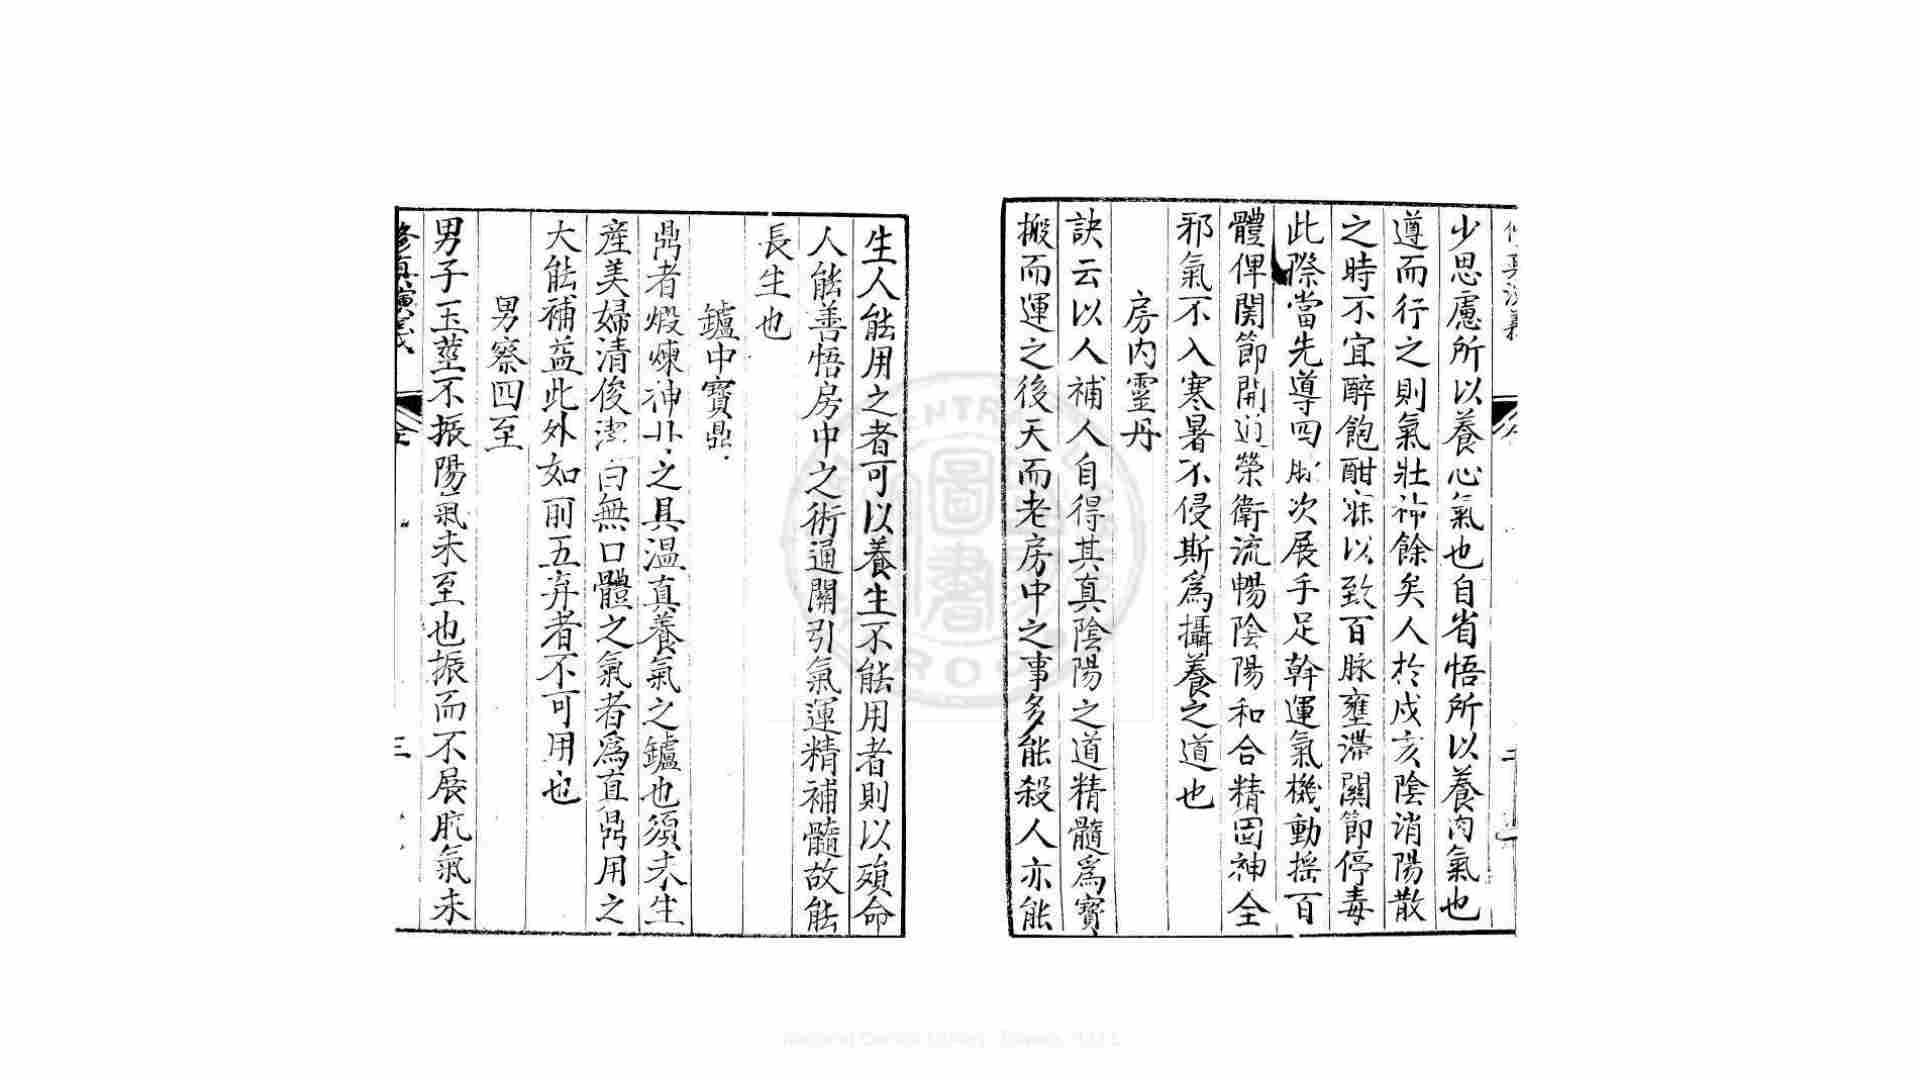 少思慮所以養心氣也自省悟所以養肉氣也
遵而行之則氣壯神餘矣人於戌亥陰消陽散
之時不宜醉飽酣寐以致百脉壅滯關節停毒
此際當先導四肢次展手足幹運氣機動搖百
體俾関節開迎榮衛流暢陰陽和合精固神全
邪氣不入寒暑不侵斯爲攝養之道也
房内靈丹
訣云以人補人自得其真陰陽之道精髓爲寶
搬而運之後天而老房中之事多能殺人亦能
生人能用之者可以養生不能用者則以殞命
人能善悟房中之術通關引氣運精補髓故能
長生也
鑪中寶鼎
鼎者煆煉神丹之具温真養氣之鑪也須未生
産美婦清俊潔白無口體之氣者爲真鼎用之
大能補益此外如前五弃者不可用也
男察四至
男子玉莖不振陽氣未至也振而不展肌氣未
修真演義
三